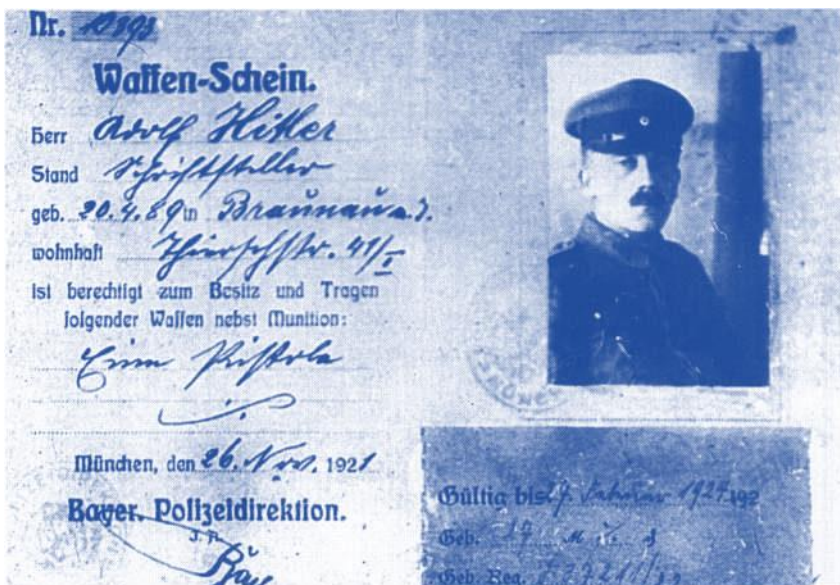 Nr.
Waffen-Schein.
Herr Adolf Hitler
Stand Schriftsteller
geb. 20.4.89 in Braunau a. I.
wohnhaft Thierschstr. 41/I
ist berechtigt zum Besitz und Tragen
folgender Waffen nebst Munition:
Eine Pistole
München, den 26. Nov. 1921
Bayer. Polizeidirektion.
J. A.
Gültig bis 27. Februar 1924 192
Geb.
Geb. Reg.